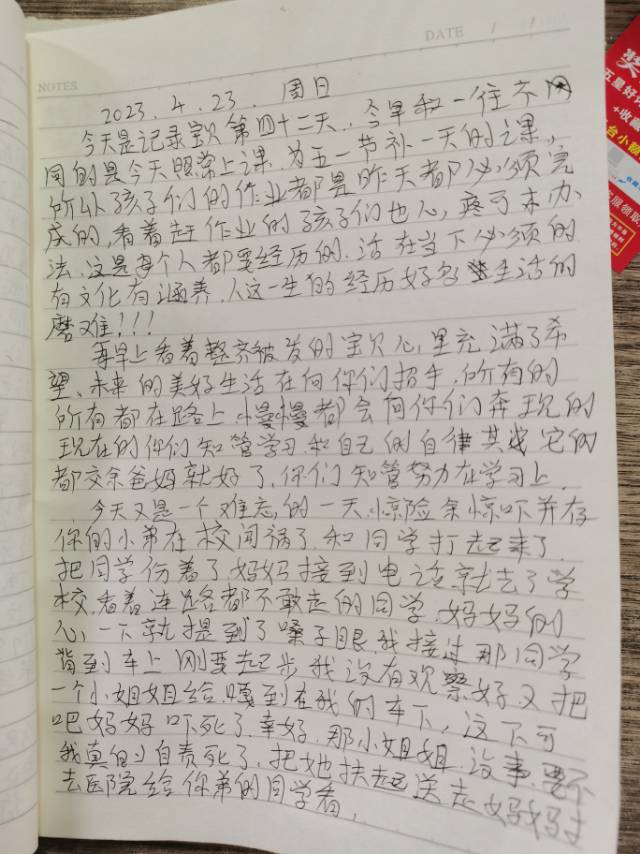 DATE / /
NOTES
2023.4.23. 周日
今天是记录宝贝第四十二天,今早和一往不
同的是今天照常上课.为五一节补一天的课,
所以孩子们的作业都是昨天都必须完
成的,看着赶作业的孩子们也心疼可木办
法.这是每个人都要经历的.活在当下必须的
有文化有涵养.人这一生的经历好多生活的
磨难!!!
每早上看着整齐被发的宝贝心里充满了希
望、未来的美好生活在向你们招手.所有的
所有都在路上.慢慢都会向你们奔现的
现在的你们知管学习和自己的自律其它的
都交余爸妈就好了.你们知管努力在学习上.
今天又是一个难忘的一天.惊险余惊吓并存
你的小弟在校闯祸了.和同学打起来了.
把同学份着了.妈妈接到电话就去了学
校.看着连路各都不敢走的同学.妈妈的
心一下就提到了嗓子眼.我接过那同学
背到车上刚要起步我没有观察好又把
一个小姐姐给嘎到在我的车下,这下可
吧妈妈吓死了.幸好.那小姐姐没事.要不
我真的自责死了.把她扶起送走妈妈才
去医院给你弟的同学看.
奖
五星好
+收
台小额
服领取